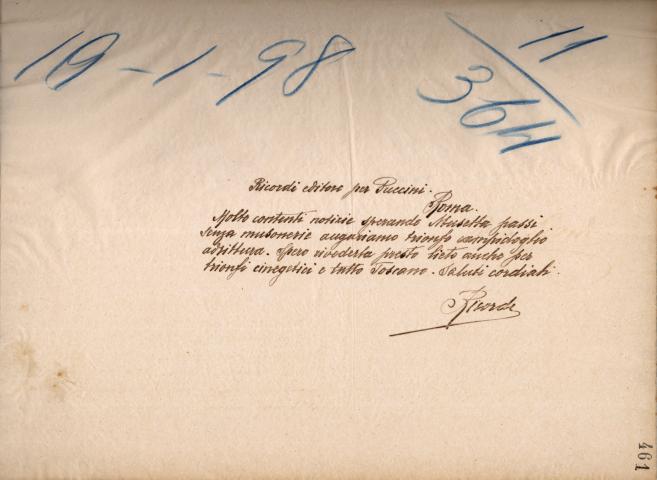 19-1-98
11
364
Ricordi editore per Puccini.
Roma.
Molto contenti notizie sperando Musetta passi
senza musonerie auguriamo trionfo campidoglio
adrittura. Spero rivederla presto lieto anche per
trionfi cinegetici e tutto Toscano. Saluti cordiali.
Ricordi
461